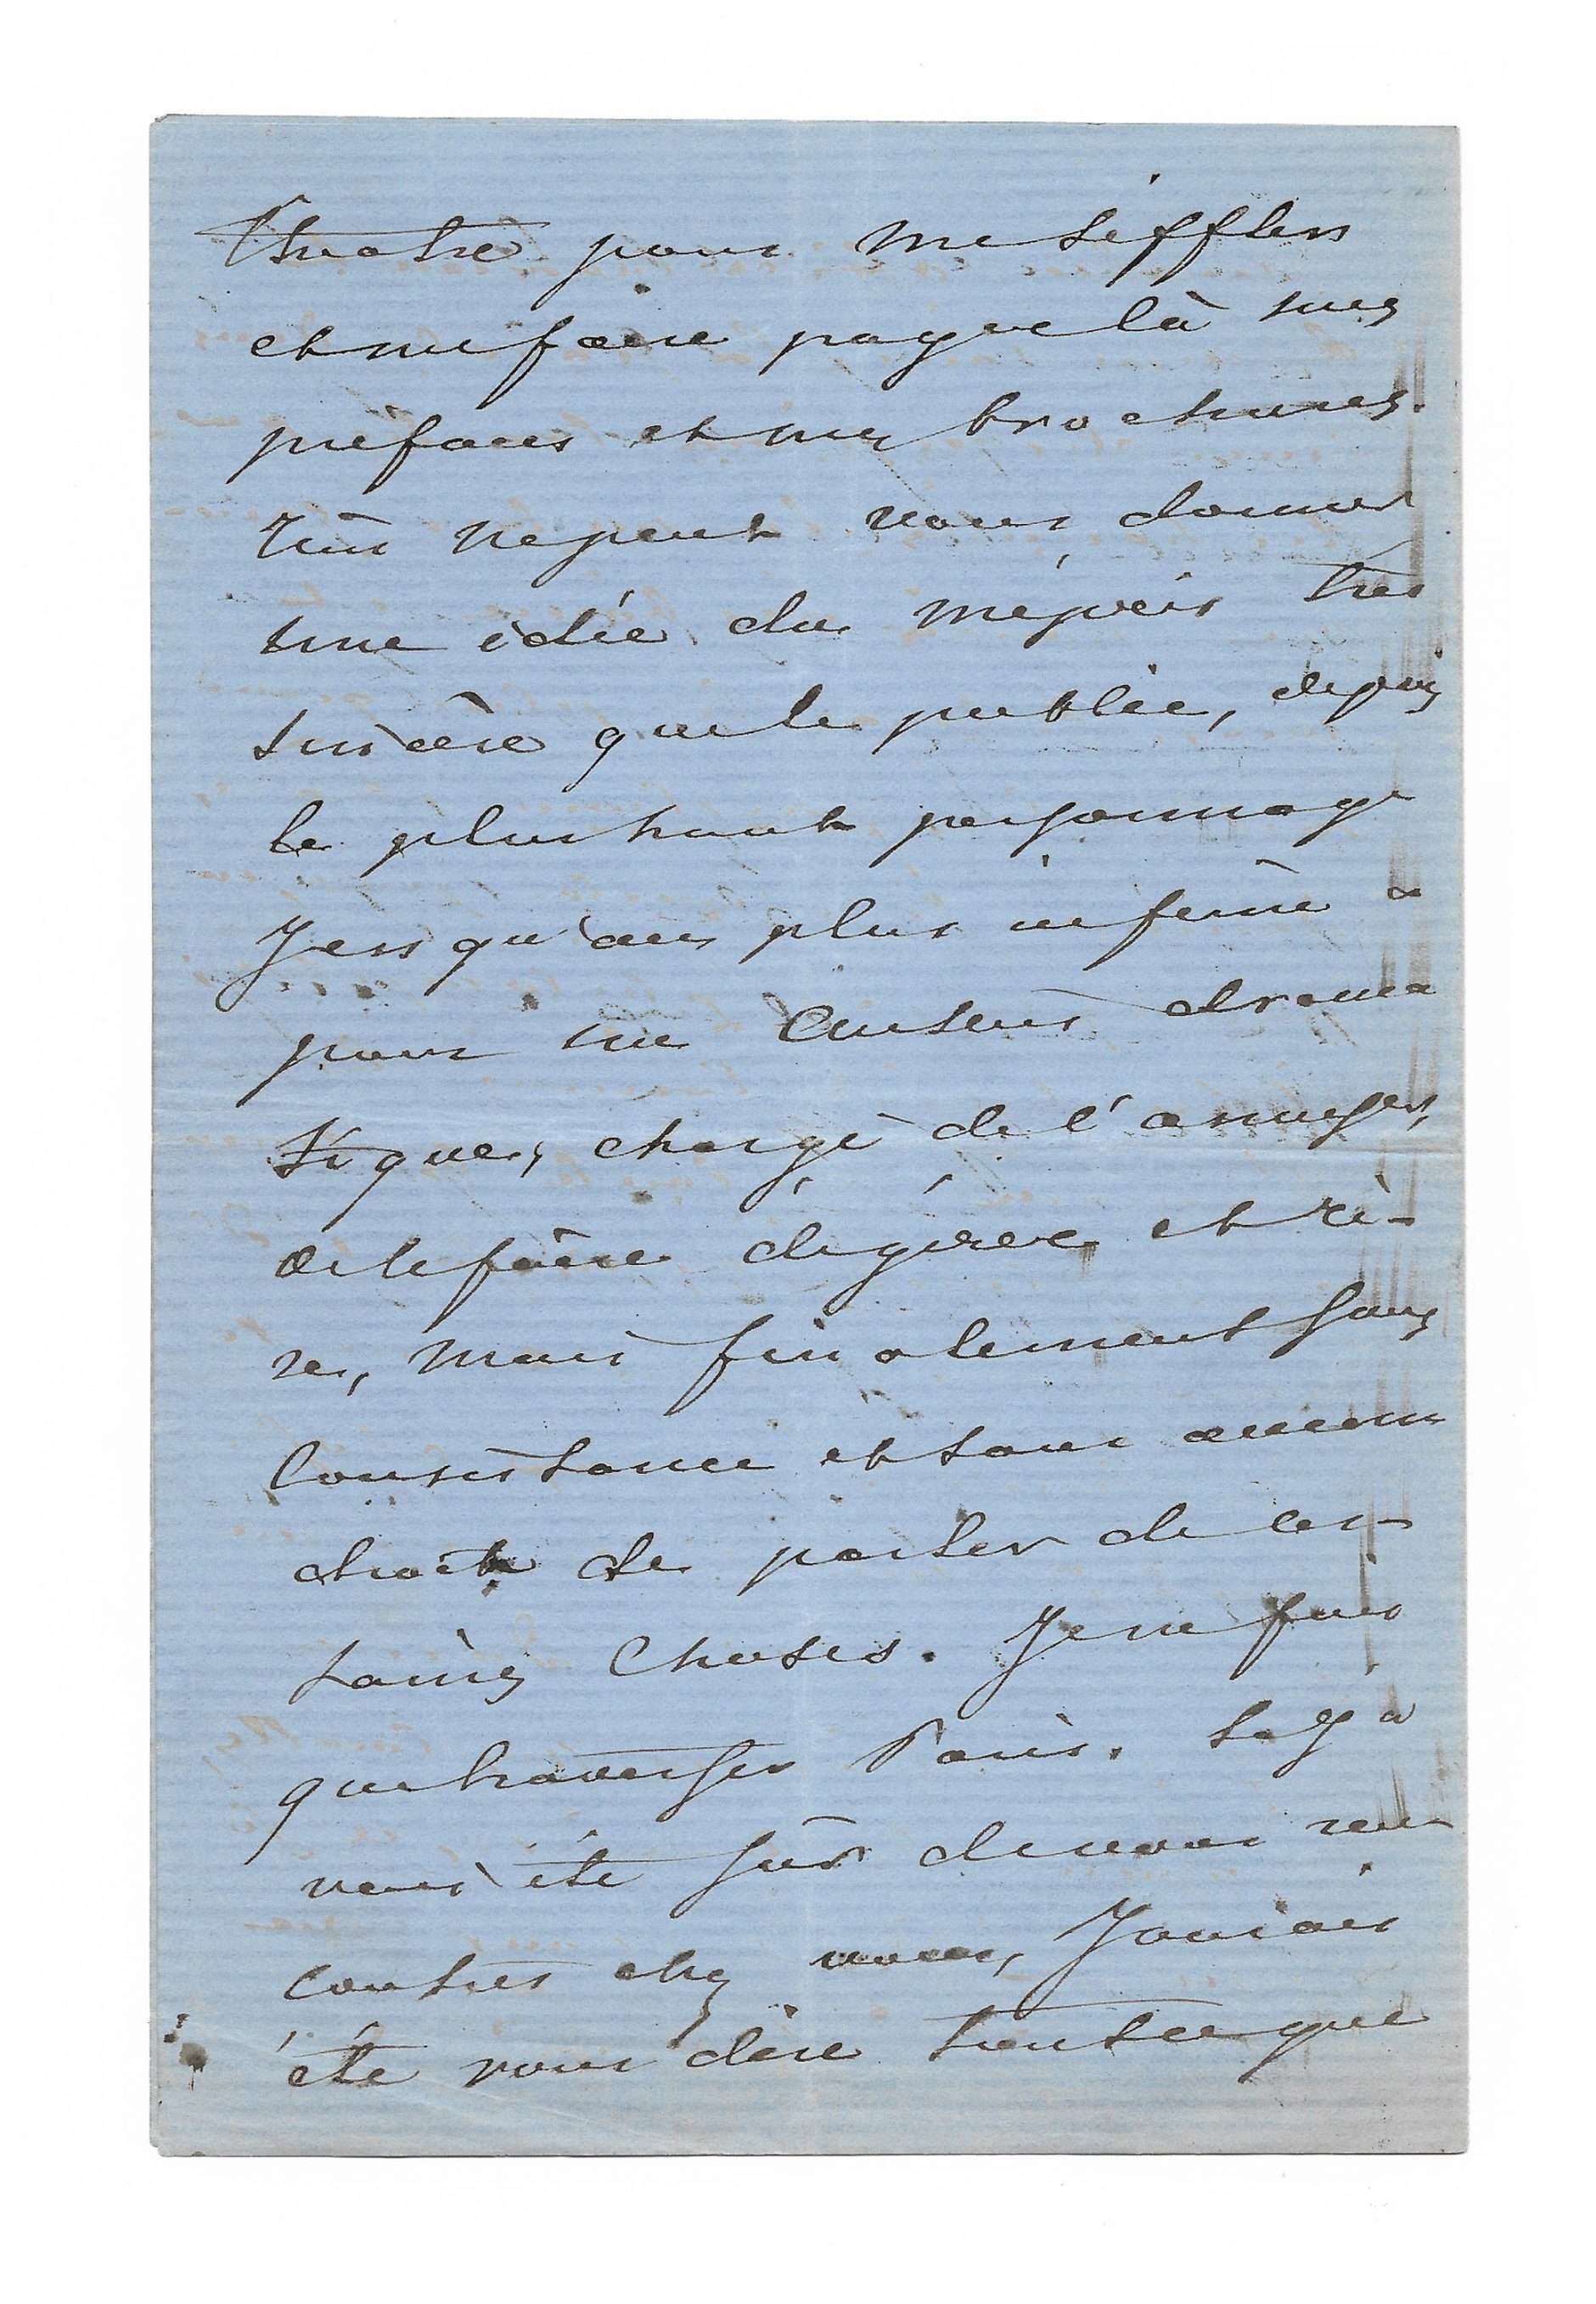 théatre pour me siffler
et me faire payer là mes
préfaces et mes brochures.
Rien ne peut vous donner
une idée du mépris très
sincère que le public, depuis
le plus haut personnage
jusqu'au plus infime a
pour un auteur drama
tique, chargé de l'amuser,
de le faire digérer et ri-
re, mais finalement sans
consistance et sans aucun
droit de parler de cer-
taines choses. Je ne fais
que traverser Paris.
été sûr de vous ren
contrer chez vous, j'aurais
été vous dire tout ce que